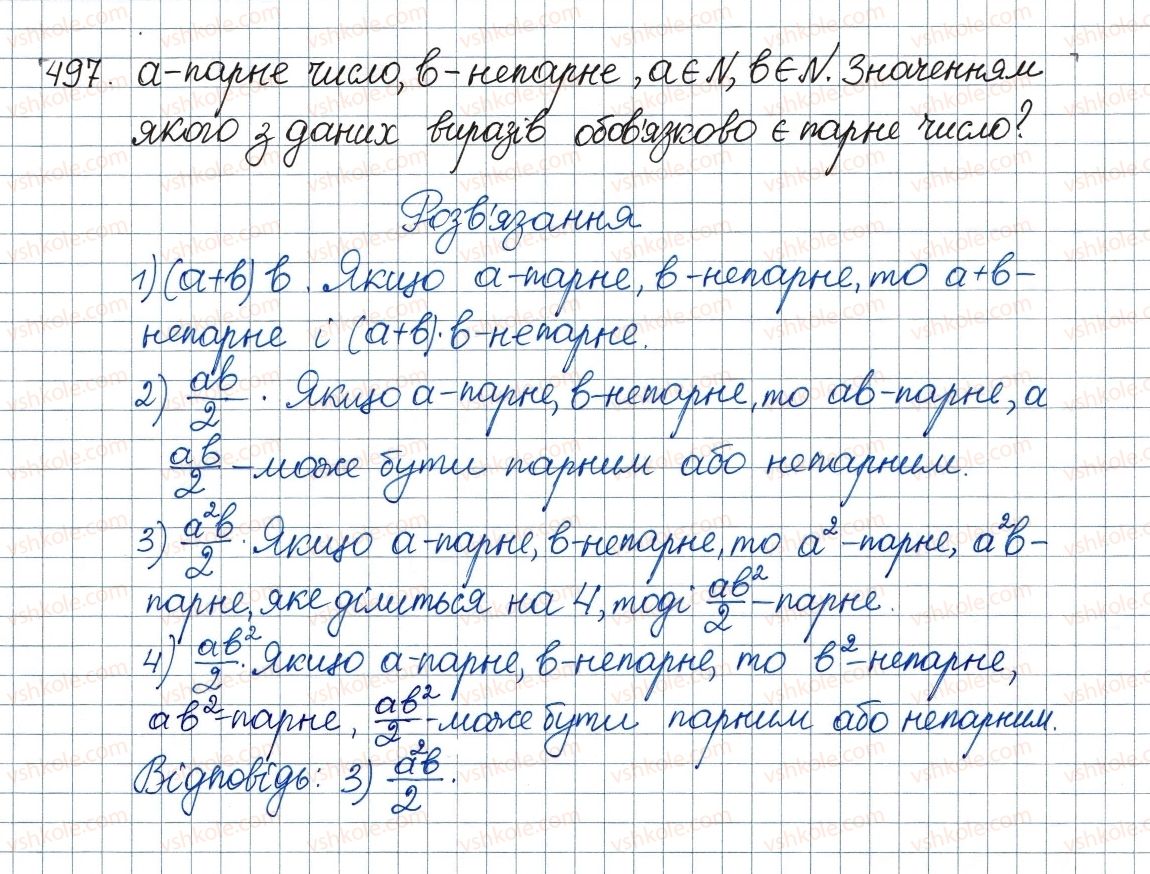 497. a-парне число, b-непарне, a∈N, b∈N. Значенням
якого з даних виразів обов'язково є парне число?
Розв'язання
1) (a+b) b. Якщо a-парне, b-непарне, то a+b-
непарне і (a+b)·b-непарне.
2) ab/2. Якщо a-парне, b-непарне, то ab-парне, а
ab/2 -може бути парним або непарним.
3) a²b/2. Якщо a-парне, b-непарне, то a²-парне, a²b-
парне, яке ділиться на 4, тоді ab²/2 -парне.
4) ab²/2. Якщо a-парне, b-непарне, то b²-непарне,
ab²-парне, ab²/2 -може бути парним або непарним.
Відповідь: 3) a²b/2.
vshkole.com